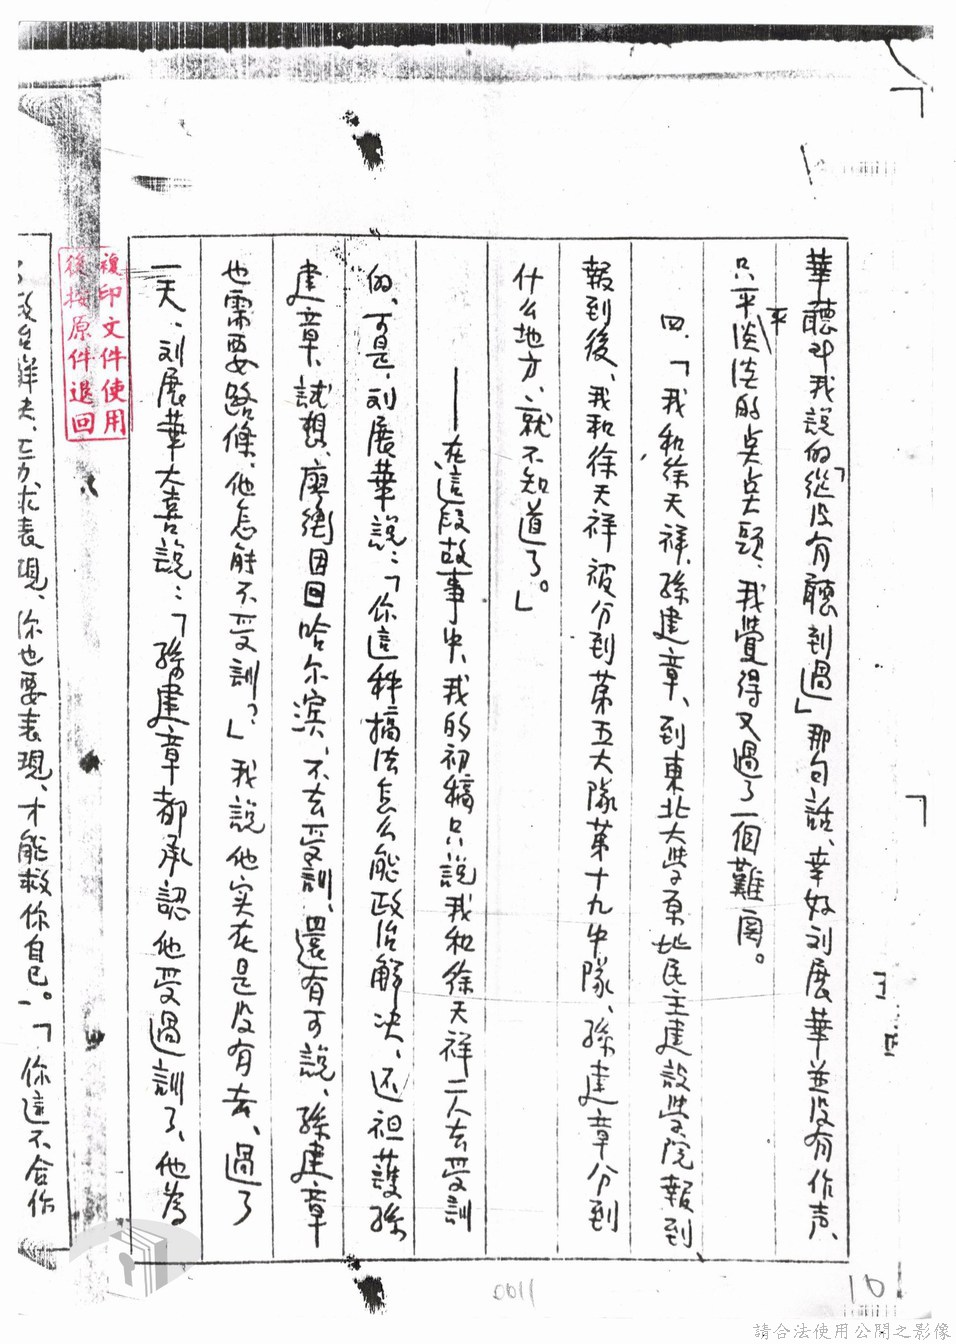 華聽到我說的「從沒有聽到過」那句話、幸好刘展華並沒有作声、
只平平淡淡的点点头、我覺得又過了一個難関。
四、「我和徐天祥、孫建章、到東北大学原址民主建設学院報到、
報到後、我和徐天祥被分到第五大隊第十九中隊、孫建章分到
什么地方、就不知道了。」
——在這段故事中、我的初稿只說我和徐天祥二人去受訓
的、可是、刘展華說：「你這种搞法怎么能政治解决、还袒護孫
建章、試想、廖衡因回哈尔滨、不去受訓、還有可說、孫建章
也需要路條、他怎能不受訓？」我說他实在是沒有去、過了
一天、刘展華大喜說：「孫建章都承認他受過訓了、他為
政治解决、工力求表現、你也要表現、才能救你自己。「你這不合作
複印文件使用
後按原件退回
0011
10
請合法使用公開之影像